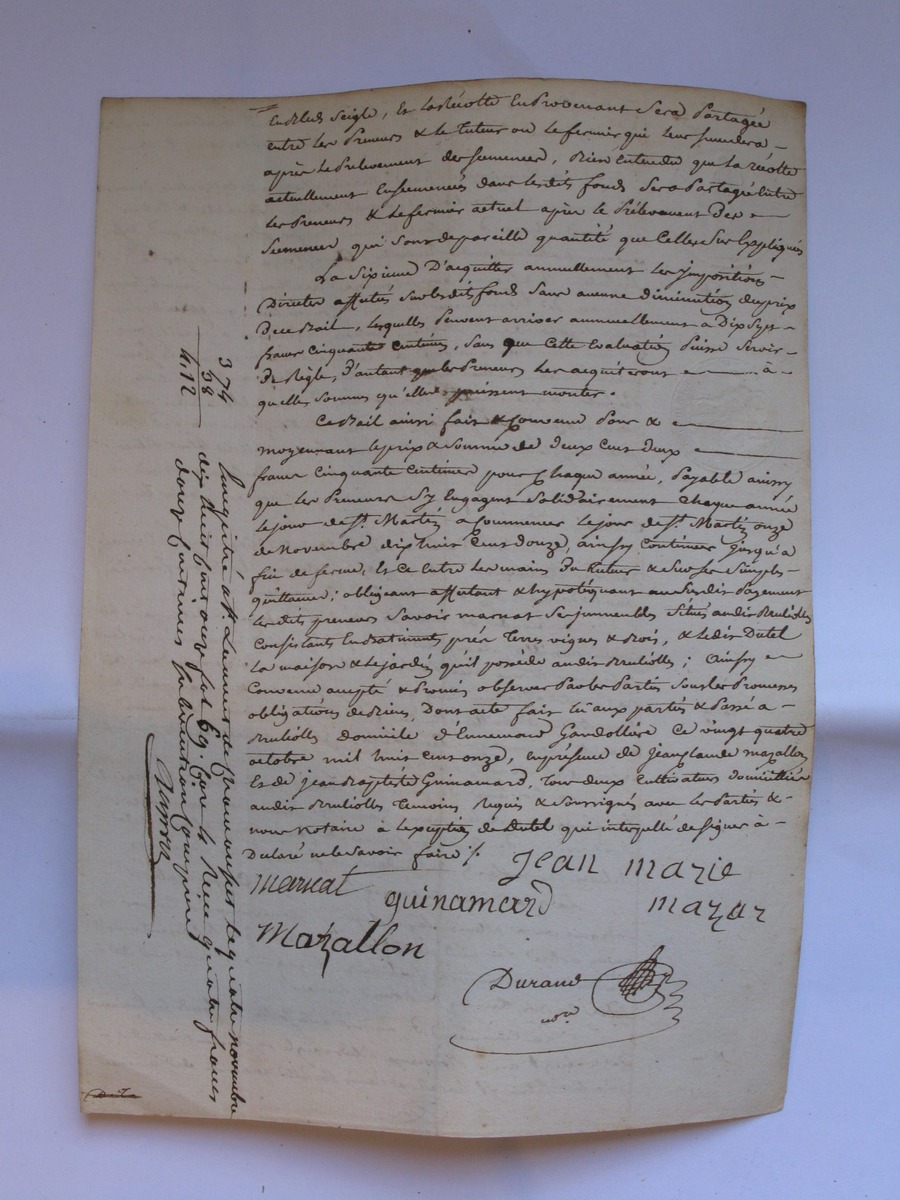 En Bled Seigle, Et La Récolte En Provenant Sera Partagée
entre Les Preneurs & Le Tuteur ou Le fermier qui leur succedera,
après Le Prelevement des semences, Bien Entendu que La récolte
actuellement Ensemencées dans lesdits fonds Sera Partagé Entre
Les Preneurs & Le fermier actuel après le Prélevement Des
Semences qui Sont de pareille quantité que Celles Sus Expliquées
La Sixieme D'acquitter annuellement les Impositions
Directes affectés sur lesdits fonds Sans aucune diminution du prix
De ce Bail, lesquelles Peuvent arriver annuellement à Dix Sept
francs Cinquante Centimes, Sans que Cette Evaluation Puisse Servir
De Règle, D'autant que les Preneurs Les acquitteront à
quelles Sommes qu'elles puissent monter.
Ce Bail ainsi fait & Convenu Pour &
moyennant le prix & Somme de Deux Cent Deux
francs Cinquante Centimes pour Chaque année, Payable ainsy
que les Preneurs S'y Engagent Solidairement Chaque année
Le jour de St. Martin a Commencer Le jour de St. Martin onze
de Novembre dix huit Cent Douze, ainsy Continuer jusqu'à
fin de ferme, Et Ce Entre Les mains Du tuteur & Sur Ses Simples
quittances; obligeant affectant & hypotéquant au Susdit Payement
Lesdits preneurs Savoir marnat Ses immeubles Situés audit Brulioles
Consistants En Batiments prés Terres vignes & Bois, & Ledit Dutel
La maison & Le jardin qu'il possède audit Brulioles; Ainsy
Convenu accepté & Promis observer Par les Parties Sous les Promesses
obligations de Biens, Dont acte fait lu aux parties & Passé à
Brulioles domicile d'Ennemond Gandollière Ce vingt quatre
octobre mil huit Cent onze, En présence de Jean Claude mazallon
Et de Jean Baptiste Guinamard, Tous deux Cultivateurs Domiciliés
audit Brulioles Temoins Requis & Soussignés avec les Parties &
nous Notaire à L'exception de Dutel qui interpellé de Signer à
Déclaré ne le Savoir faire ./.
Marnat
Jean Marie
guinamard
mazar
Mazallon
Durand
nore
3 74
38
4,12
Enregistré à St. Laurent de Chamousset le quatre novembre
dix huit cent onze fol. 69. Reçu quatre francs
douze centimes subvention comprise